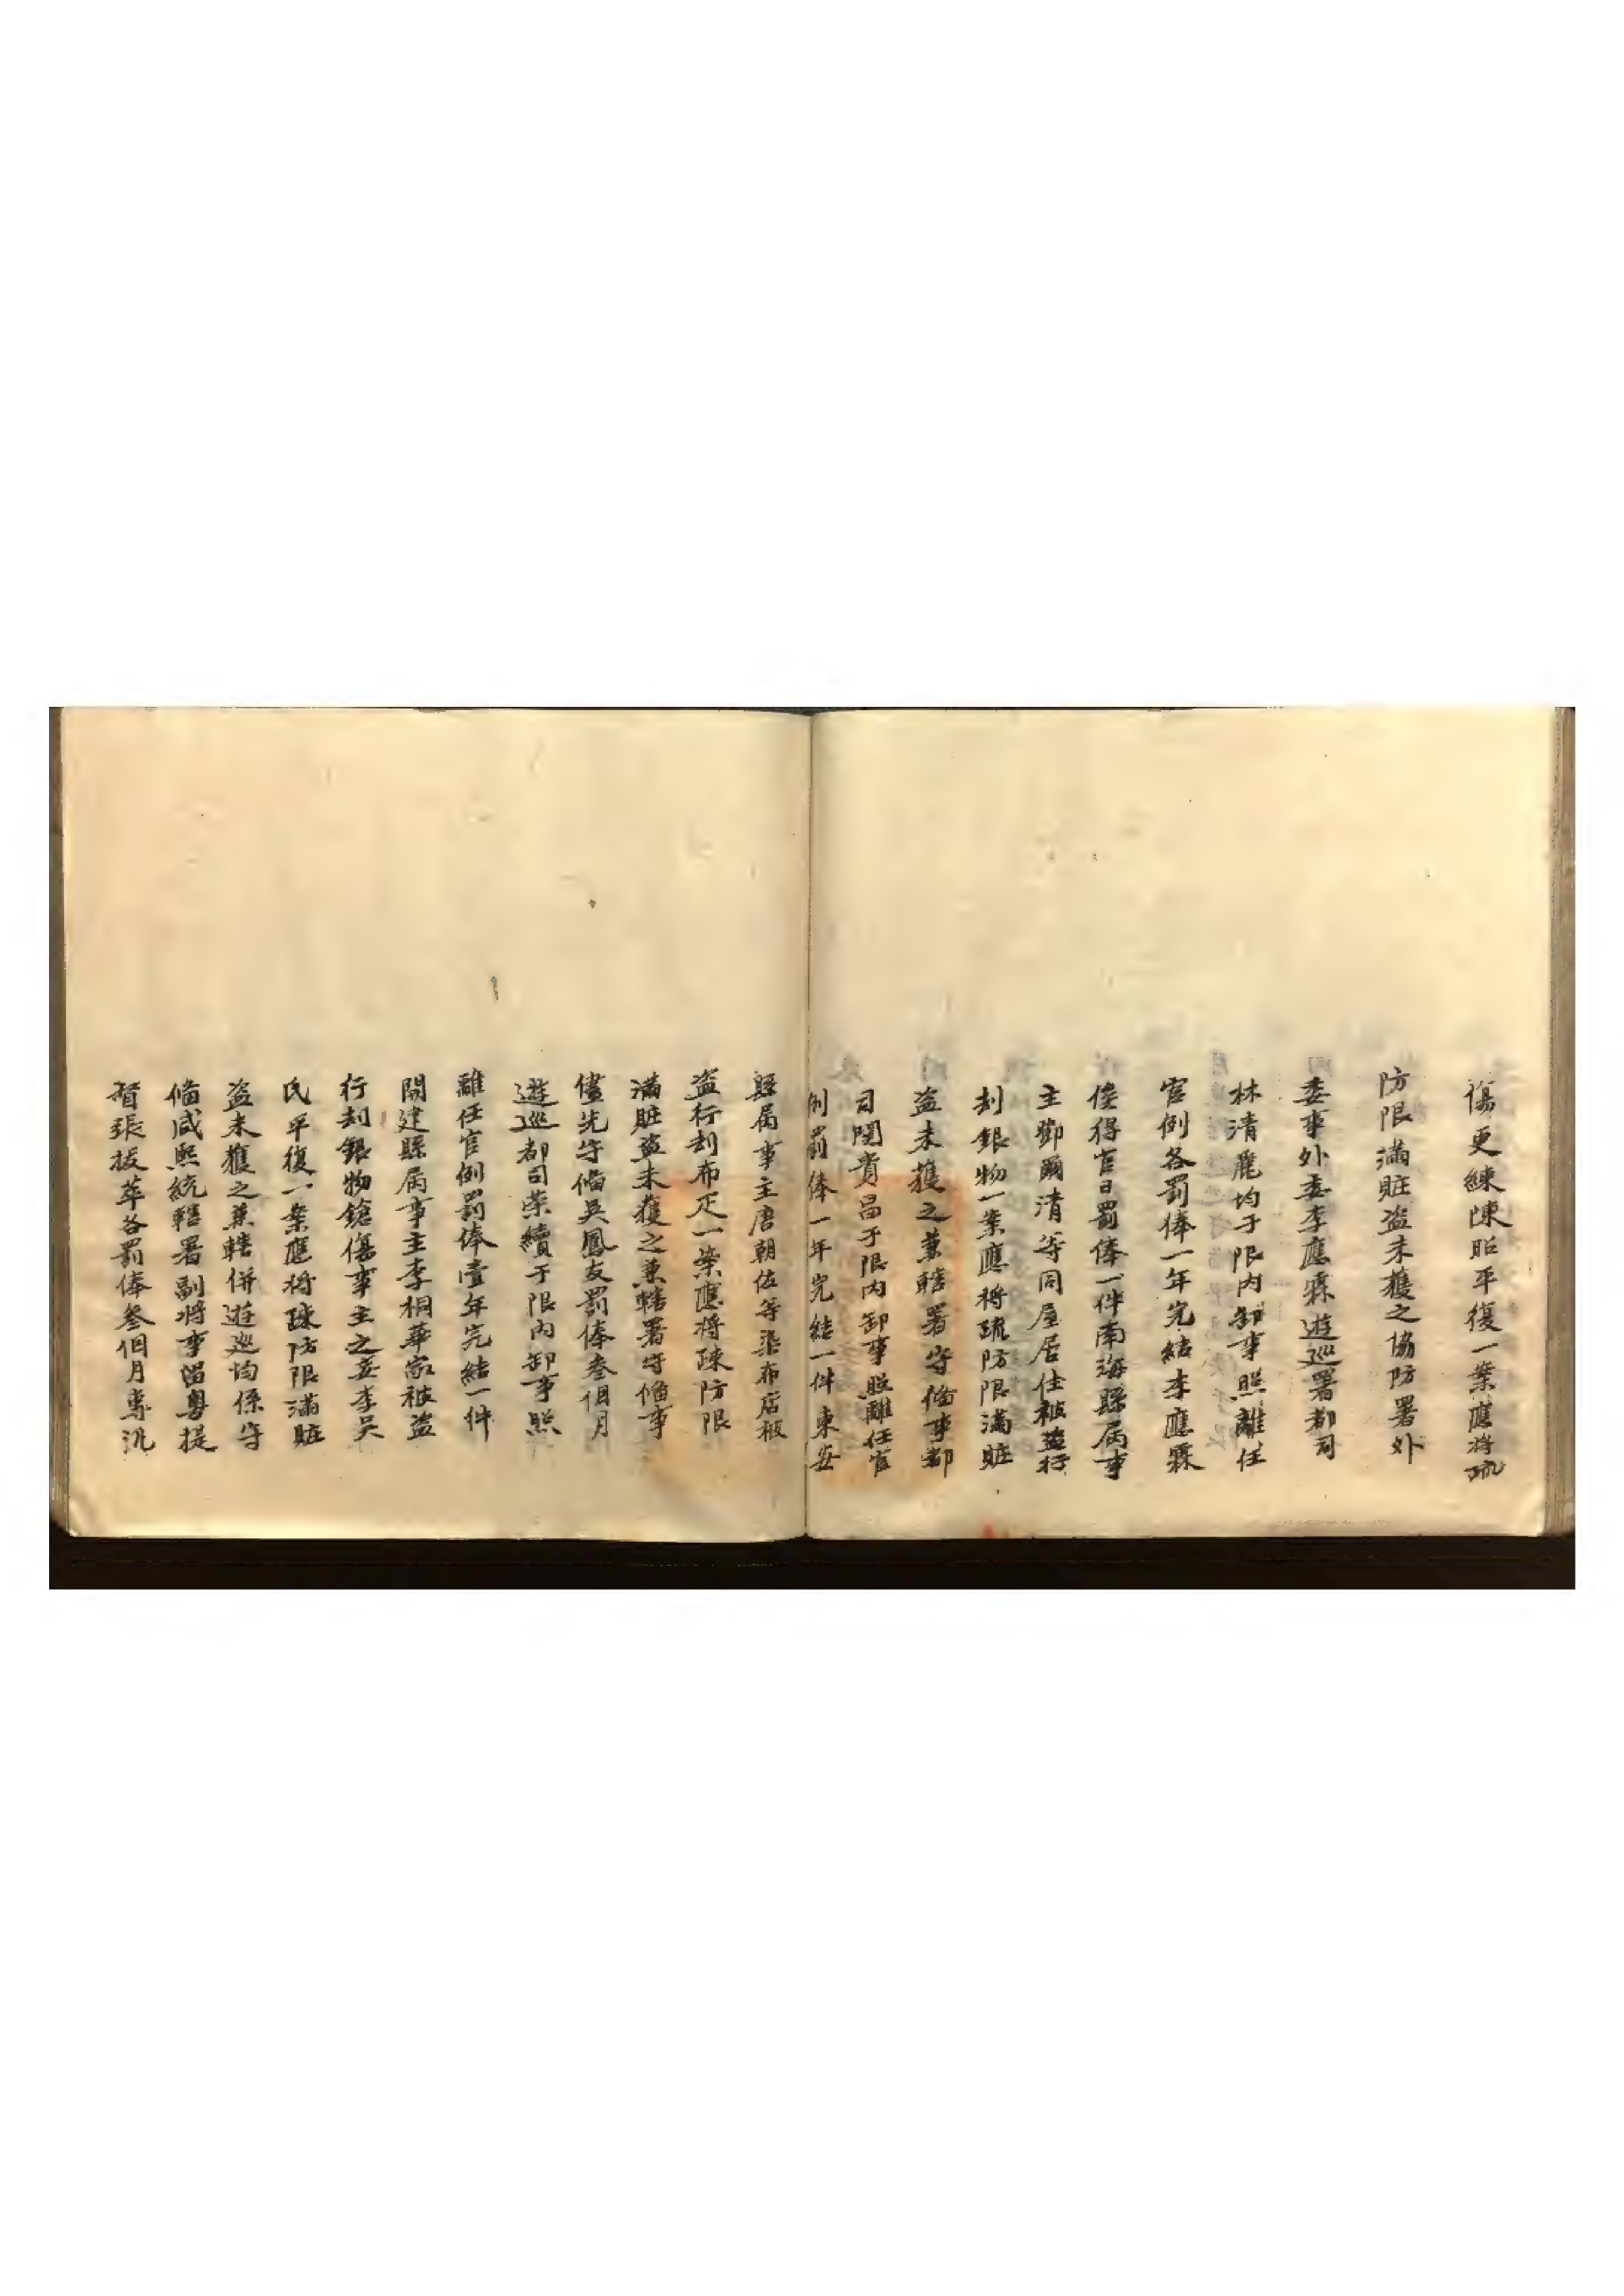 傷更練陳昭平復一案應將疏
防限滿賍盜未獲之協防署外
委事外委李應霖遊巡署都司
林清麗均于限内卸事照離任
官例各罰俸一年完結李應霖
俟得官日罰俸一件南海縣屬事
主鄧爾清等同屋居住被盜行
刦銀物一案應將疏防限滿賍
盜未獲之兼轄署守偹事都
司閔貴昌于限内卸事照離任官
例罰俸一年完結一件東安
縣屬事主唐朝佐等染布店被
盜行刦布疋一案應將疎防限
滿賍盜未獲之兼轄署守偹事
儘先守偹吳鳳友罰俸叁個月
遊巡都司柴續于限内卸事照
離任官例罰俸壹年完結一件
開建縣屬事主李桐華家被盜
行刦銀物鎗傷事主之妾李吳
氏平復一案應將疎防限滿賍
盜未獲之兼轄併遊巡均係守
偹咸熙統轄署副將事留粵提
督張拔萃各罰俸叁個月專汛